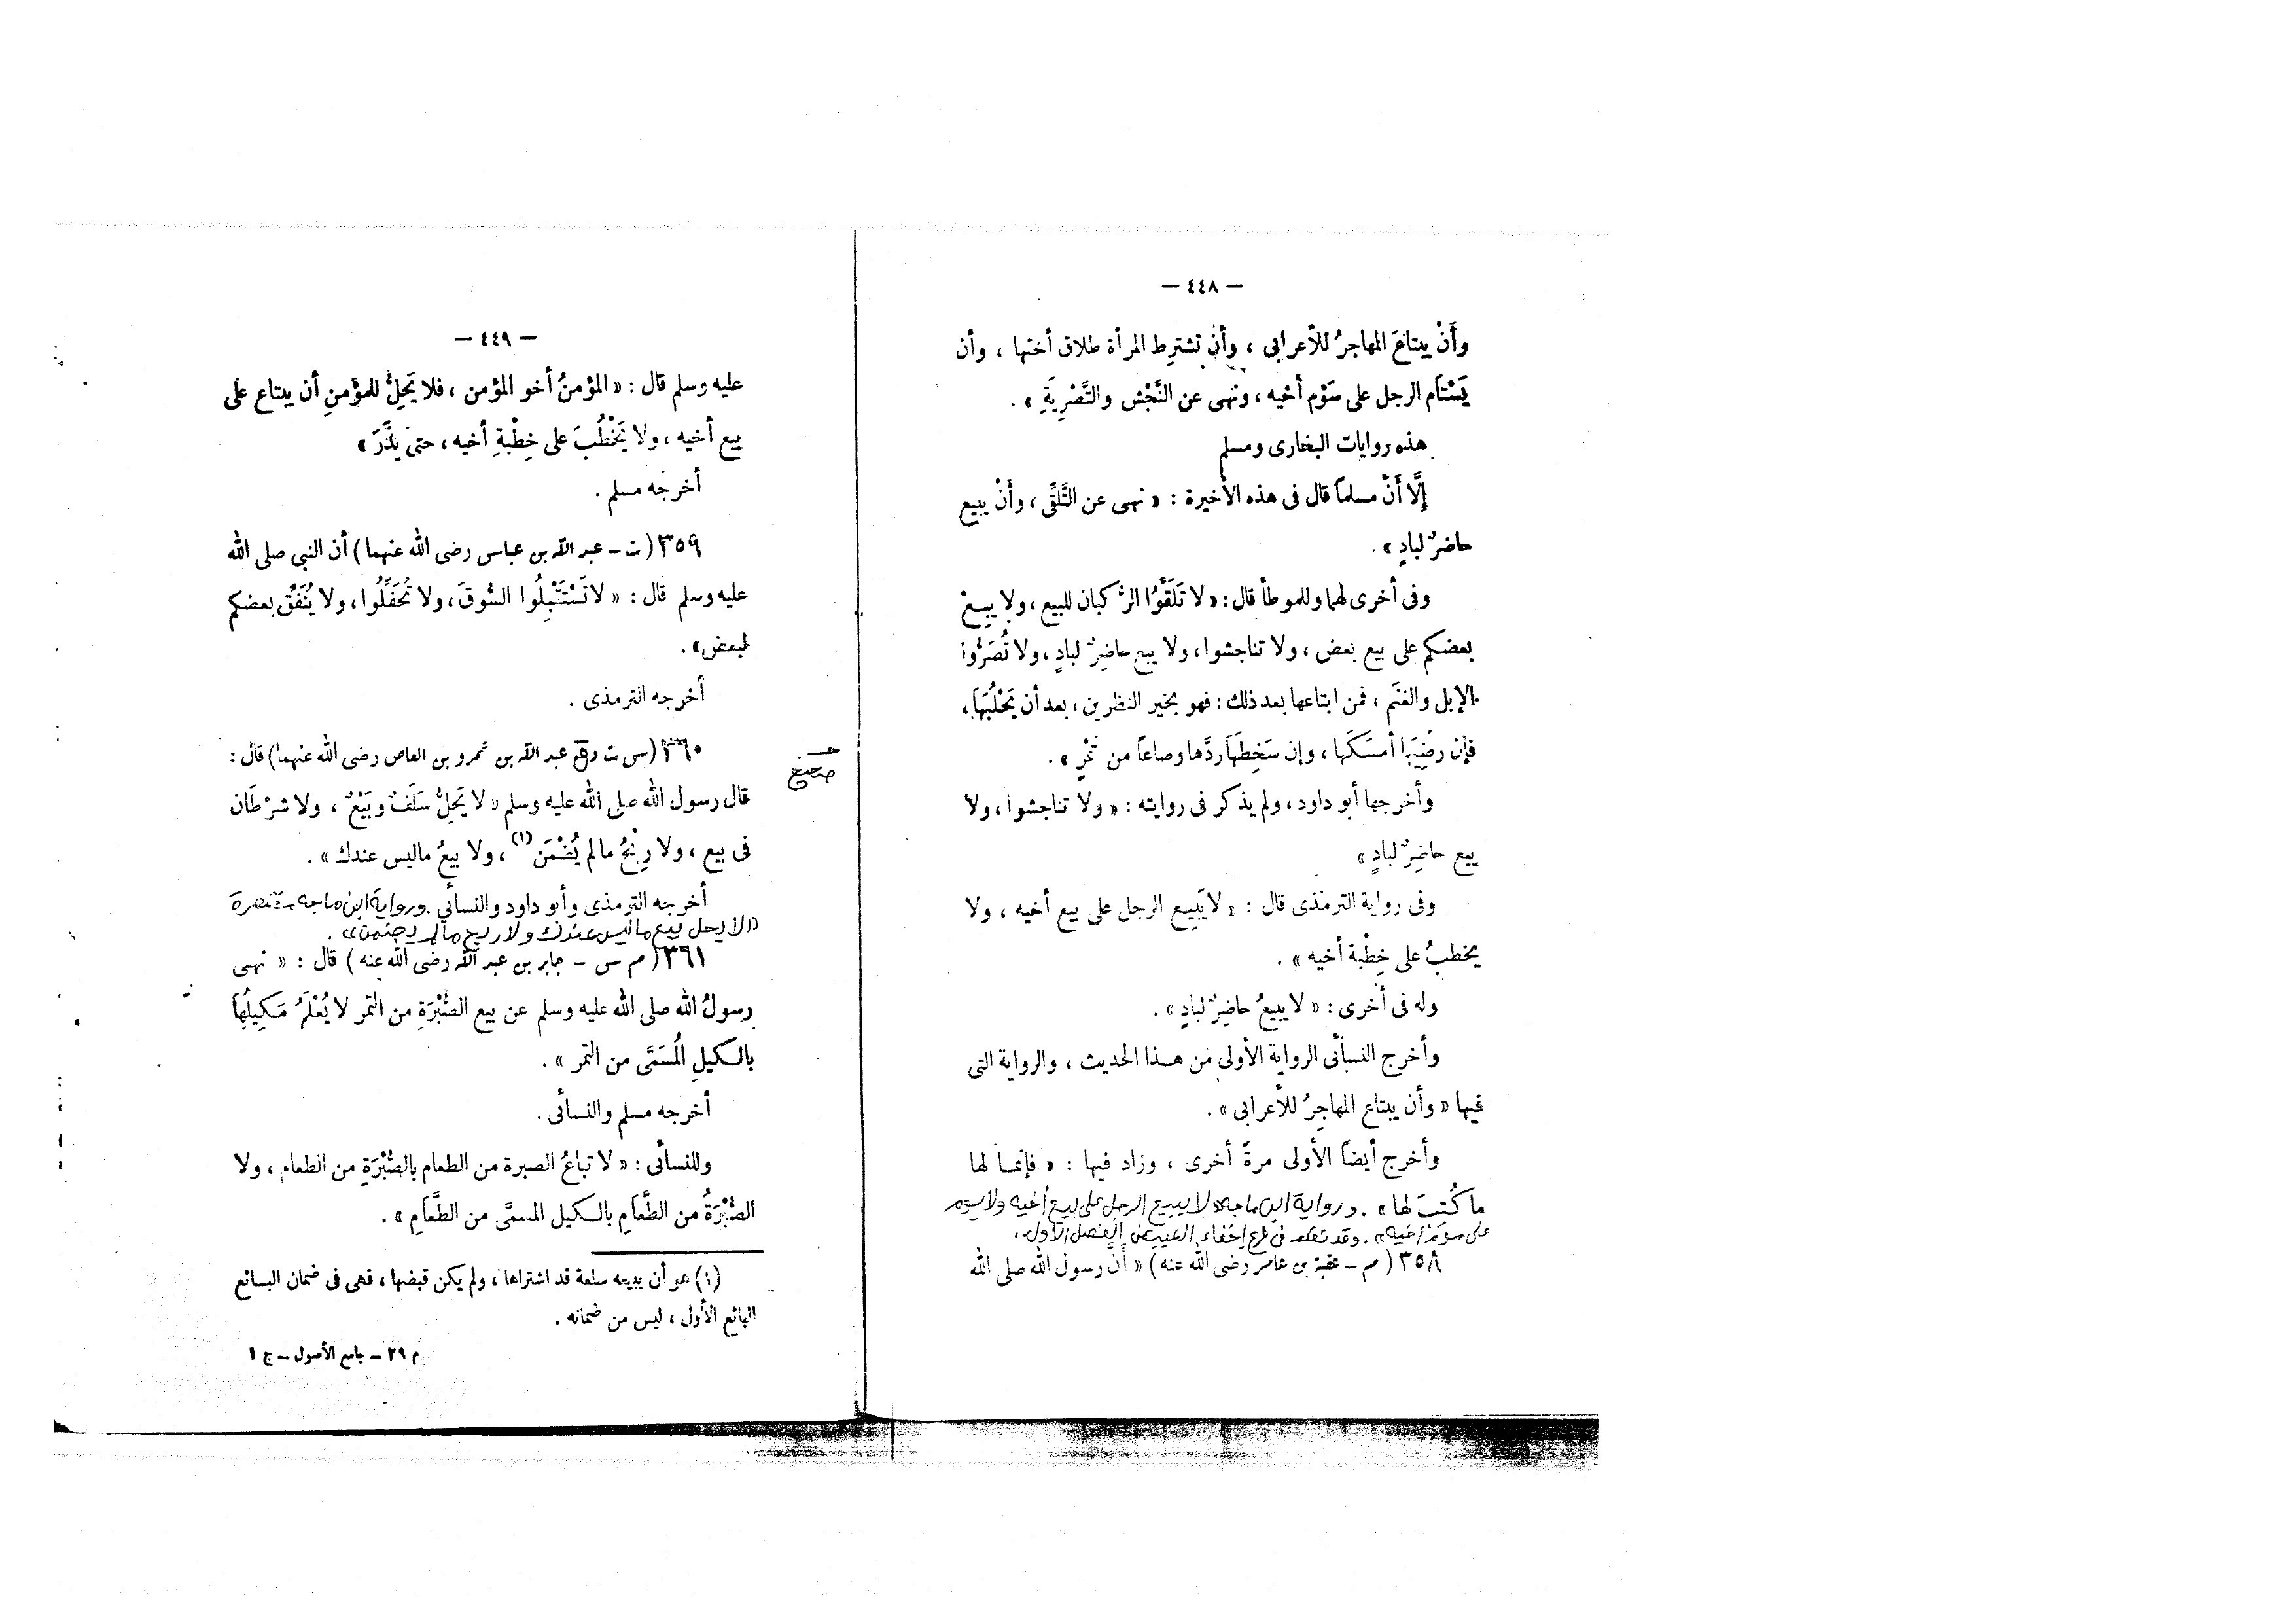 — ٤٤٨ —
وأَنْ يبتاعَ المهاجرُ للأعرابى ، وأن تشترِط المرأة طلاق أختها ، وأن
يَسْتَام الرجل على سَوْم أخيه ، ونَهى عن النَّجْش والتَّصْرِيَةِ » .
هذه روايات البخارى ومسلم
إلَّا أَنَّ مسلماً قال فى هذه الأخيرة : « نهى عن التَّلقِّى ، وأنْ يبيع
حاضرٌ لبادٍ » .
وفى أخرى لهما وللموطأ قال : « لا تَلَقَّوُا الرُّكبان للبيع ، ولا يبِعْ
بعضكم على بيع بعض ، ولا تناجشوا ، ولا يبع حاضِرٌ لبادٍ ، ولا تُصَرُّوا
الإبل والغنَم ، فمن ابتاعها بعد ذلك : فهو بخير النظرين ، بعد أن يَحْلُبَهَا ،
فإن رضِيَهَا أمسَكَها ، وإن سَخِطَهَا ردَّها وصاعاً من تَمْرٍ » .
وأخرجها أبو داود ، ولم يذكر فى روايته : « ولا تناجشوا ، ولا
يبع حاضِرٌ لبادٍ »
وفى رواية الترمذى قال : « لا يَبِيع الرجل على بيع أخيه ، ولا
يخطبُ على خِطْبة أخيه » .
وله فى أخرى : « لا يبيعُ حاضِرٌ لبادٍ » .
وأخرج النسائى الرواية الأولى من هذا الحديث ، والرواية التى
فيها « وأن يبتاع المهاجِرُ للأعرابى » .
وأخرج أيضاً الأولى مرةً أخرى ، وزاد فيها : « فإنما لها
ما كُتِبَ لها » . ورواية ابن ماجه « لا يبيع الرجل على بيع أخيه ولا يسوم
على سوم أخيه » . وقد تقدم فى فرع إخفاء العيب من الفصل الأول .
٣٥٨ ( م – عقبة بن عامر رضى الله عنه ) « أَنَّ رسول الله صلى الله
— ٤٤٩ —
عليه وسلم قال : « المؤمنُ أخو المؤمن ، فلا يَحِلُّ للمؤمنِ أن يبتاع على
بيع أخيه ، ولا يَخْطُبَ على خِطْبةِ أخيه ، حتى يَذَرَ »
أخرجه مسلم .
٣٥٩ ( ت – عبد الله بن عباس رضى الله عنهما ) أن النبى صلى الله
عليه وسلم قال : « لا تَسْتَقْبِلُوا السُّوقَ ، ولا تُحَفِّلُوا ، ولا يُنَفِّق بعضكم
لبعض » .
أخرجه الترمذى .
حـ
صحيح
٣٦٠ ( س ت د عبد الله بن عمرو بن العاص رضى الله عنهما ) قال :
قال رسول الله صلى الله عليه وسلم « لا يَحِلُّ سَلَفٌ وبَيْعٌ ، ولا شرْطَان
فى بيع ، ولا رِبْحُ مالم يُضْمَن (١) ، ولا بيعُ ماليس عندك » .
أخرجه الترمذى وأبو داود والنسائى . ورواية ابن ماجه مختصرة
« لا يحل بيع ما ليس عندك ولا ربح ما لم يضمن » .
٣٦١ ( م س – جابر بن عبد الله رضى الله عنه ) قال : « نهى
رسولُ الله صلى الله عليه وسلم عن بيع الصُّبْرَةِ من التمر لا يُعْلَمُ مَكِيلُهَا
بالكيلِ المُسَمَّى من التمر » .
أخرجه مسلم والنسائى .
وللنسائى : « لا تباعُ الصبرة من الطعام بالصُّبْرَةِ من الطعام ، ولا
الصُّبْرَةُ من الطَّعَامِ بالكيل المسمَّى من الطَّعَامِ » .
(١) هو أن يبيعه سلعة قد اشتراها ، ولم يكن قبضها ، فهى فى ضمان البائع
البائع الأول ، ليس من ضمانه .
م ٢٩ – جامع الأصول – ج ١